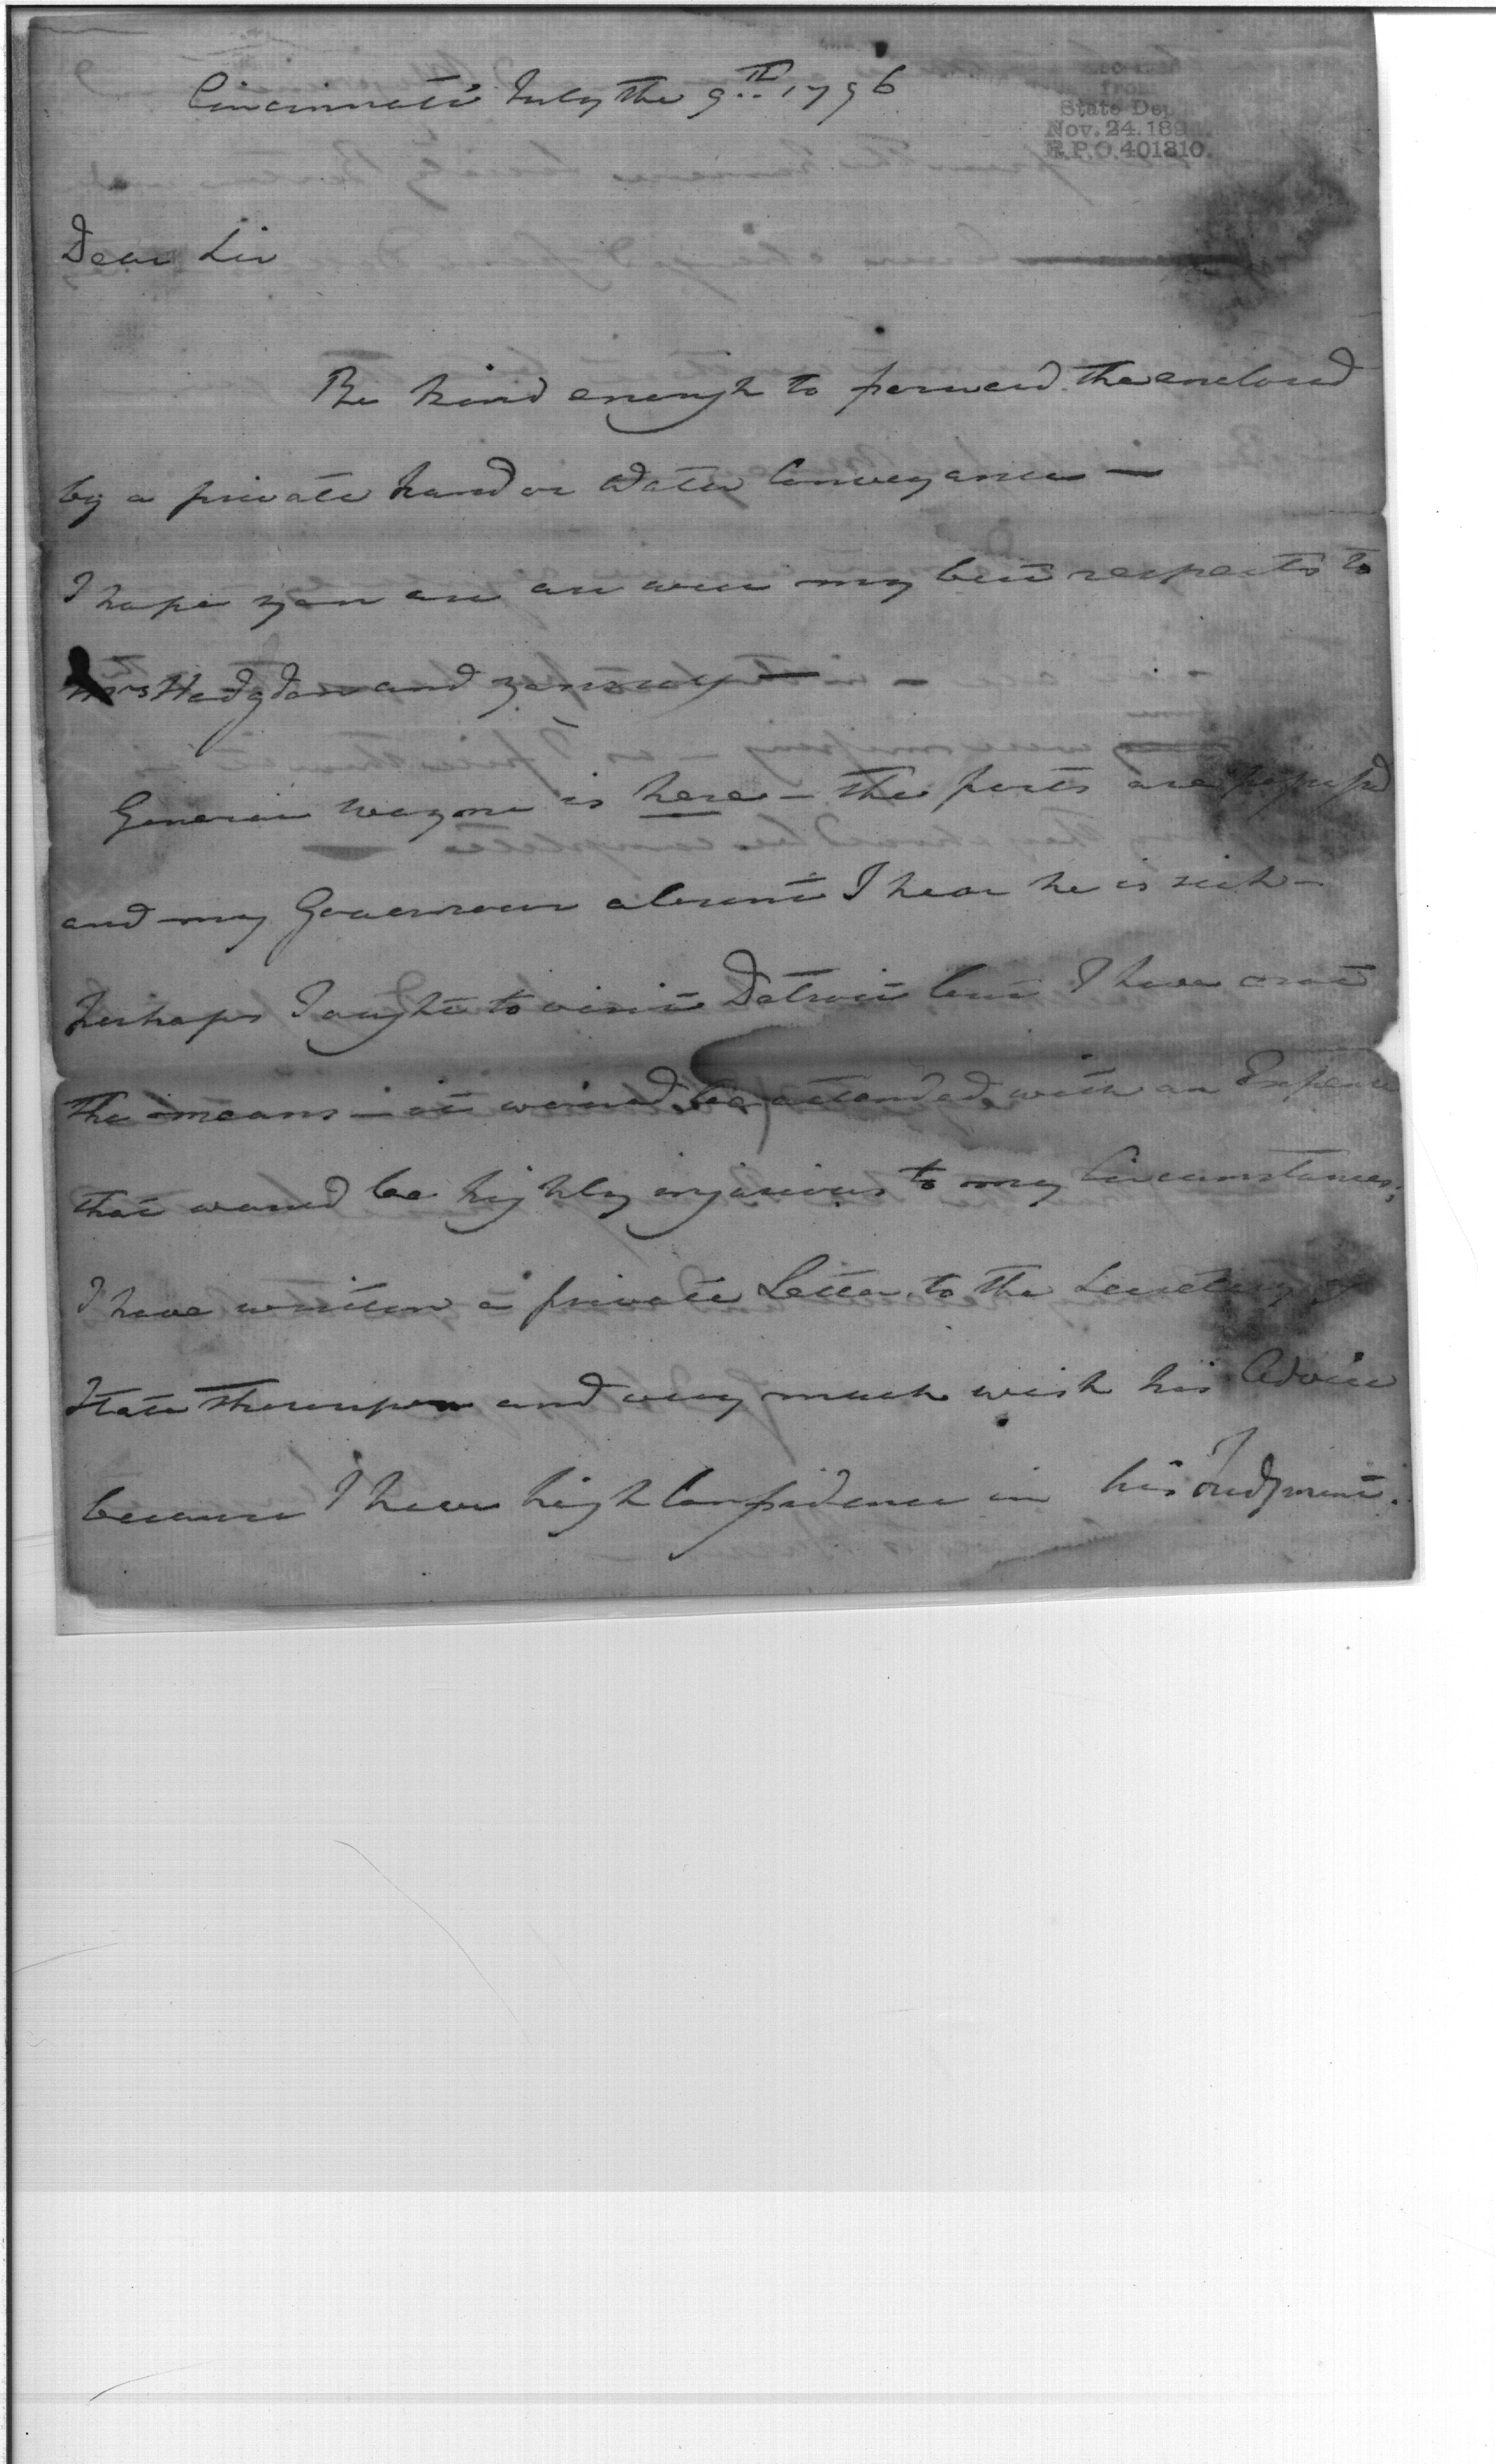 Cincinnati July the 9th 1796
from
State Dep
Nov. 24. 189
R.P.O. 401810.
Dear Sir
Be kind enough to forward the enclosed
by a private hand or Water Conveyance —
I hope you are all well my best respects to
Mrs Hodgdon and yourself —
General Wayne is here — the forts are
and my Governour absent I hear he is sick —
Perhaps I ought to visit Detroit but I have not
the means — it would be attended with an Expence
that would be highly injurious to my Circumstances;
I have written a private Letter to the Secretary of
State thereupon and very much wish his Advice
because I have high Confidence in his Judgment.